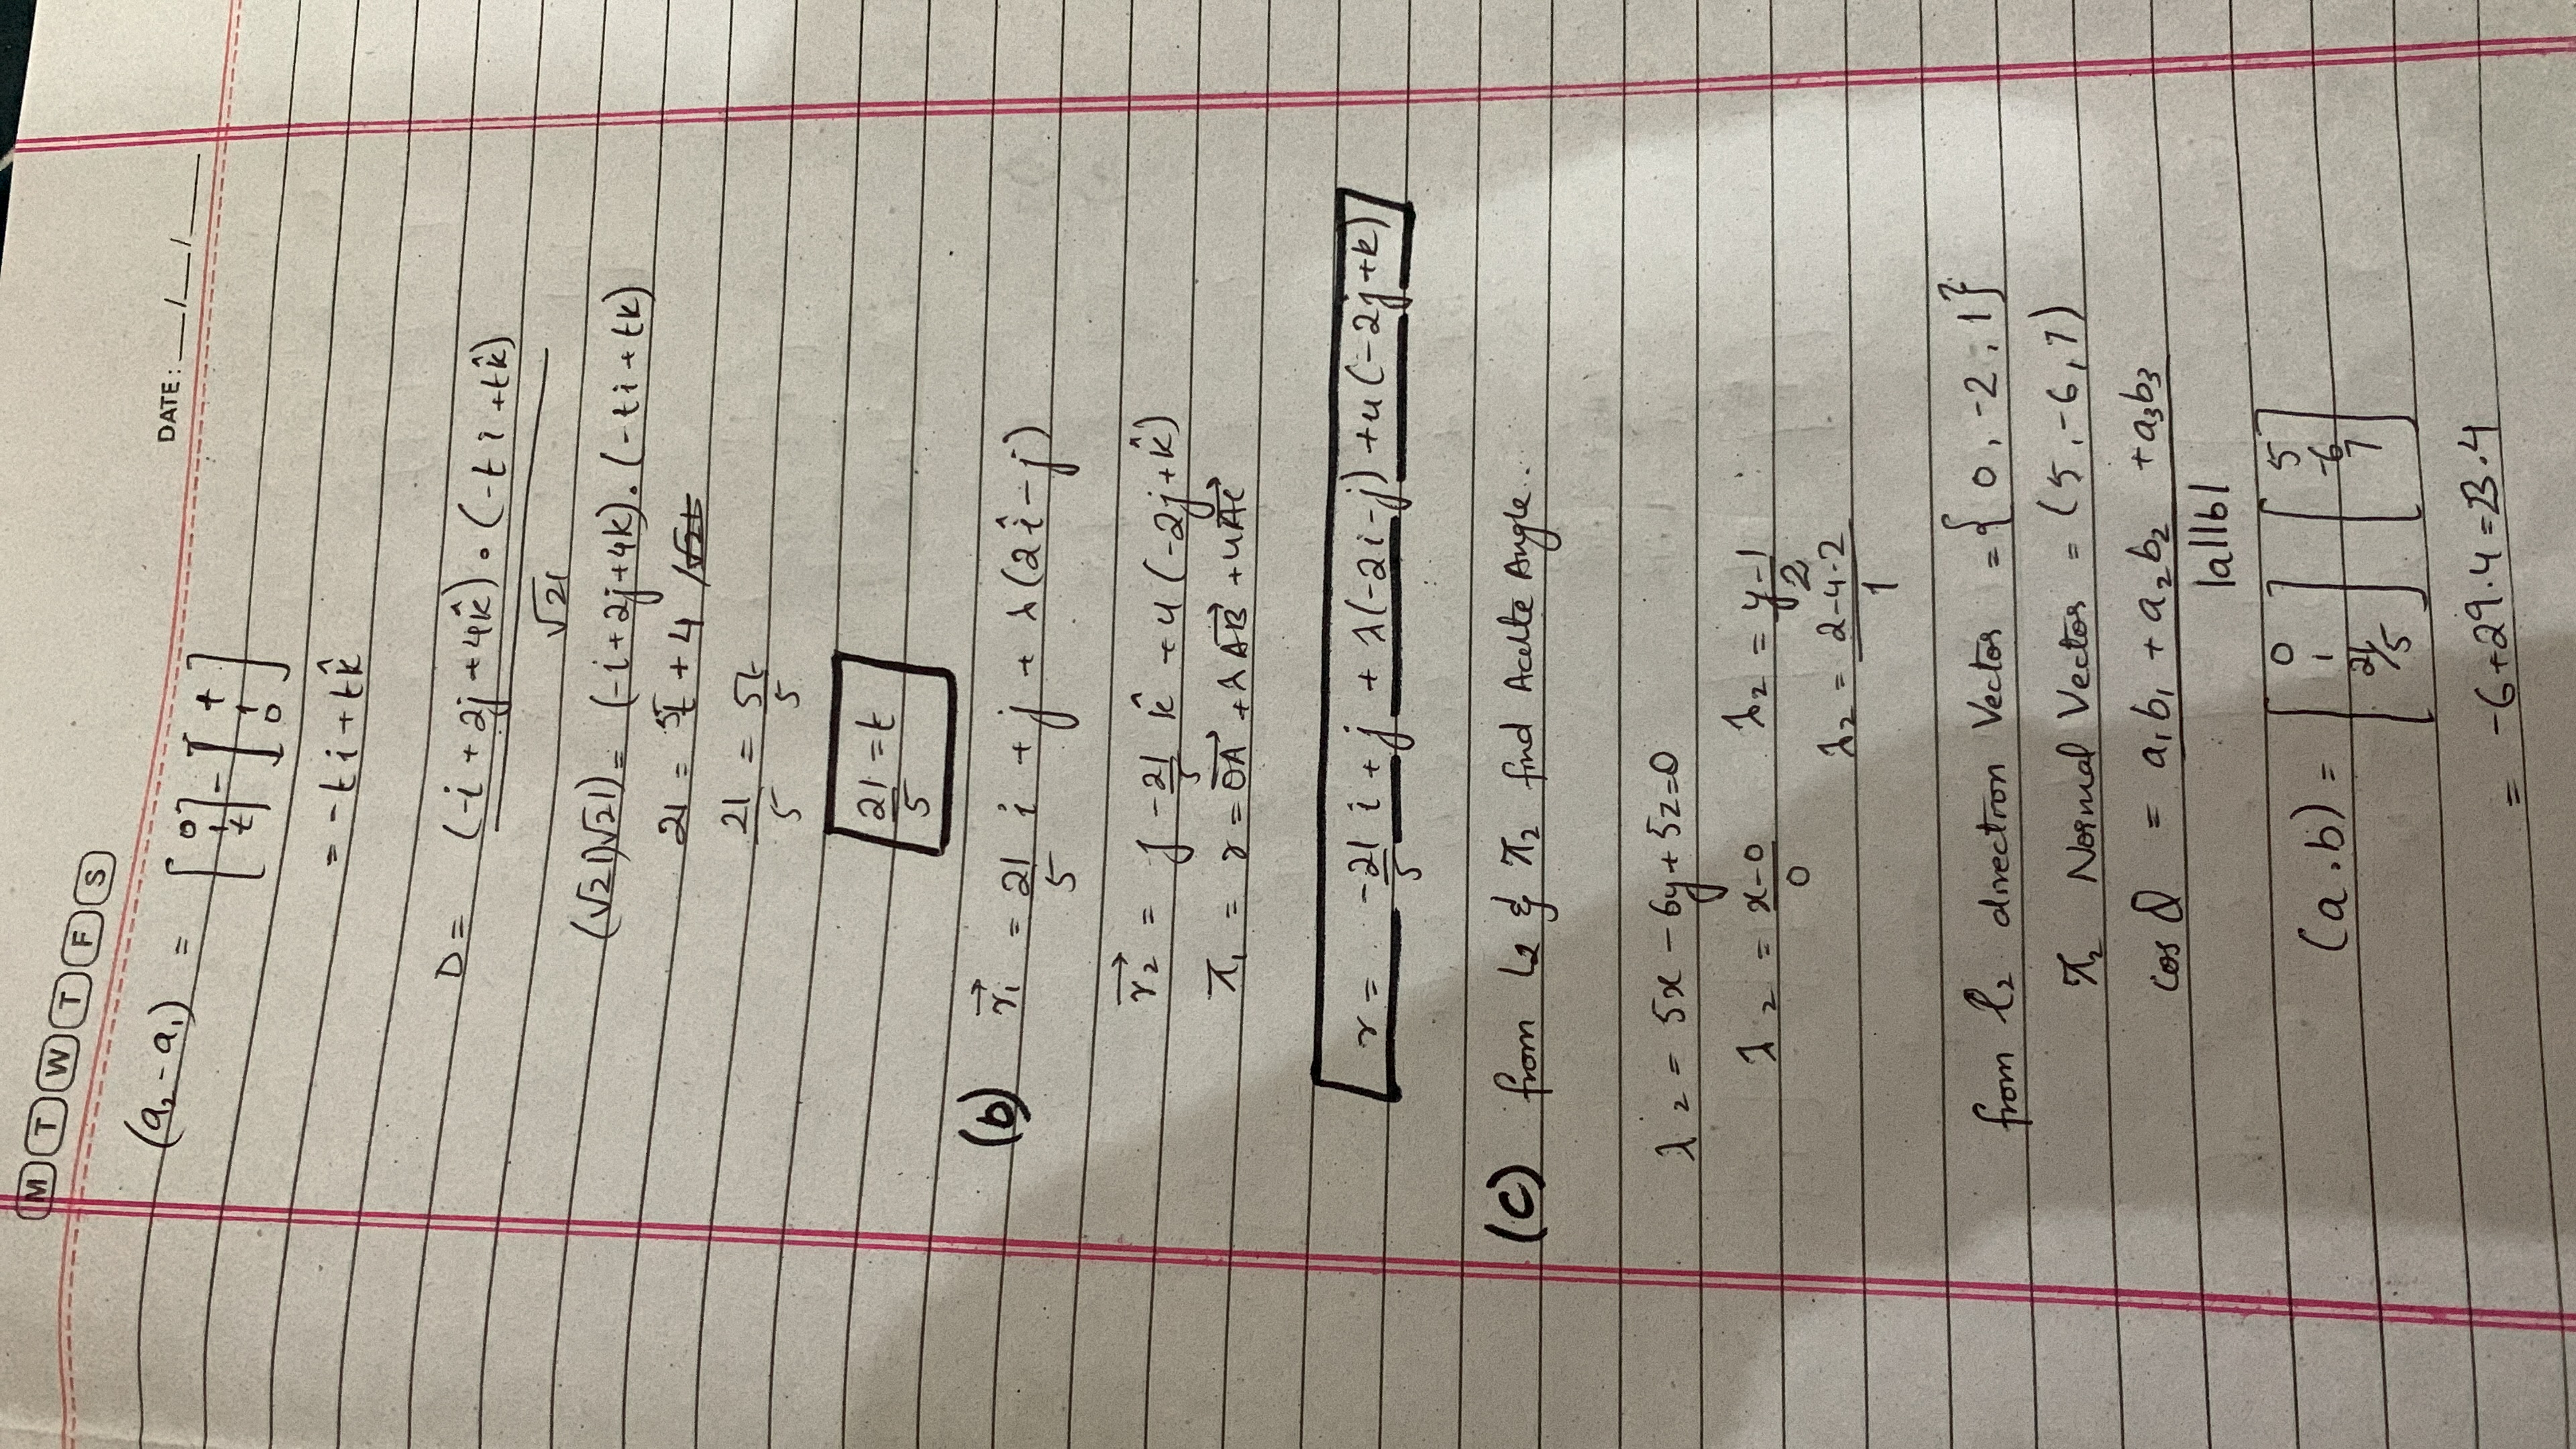 M T W T F S
DATE: __/__/____
(a₂ - a₁) = [0 1 t] - [t 1 0]
= -ti + tk̂
D = (-i + 2j + 4k̂) · (-ti + tk̂)
√21
(√21)(√21) = (-i + 2j + 4k) · (-ti + tk)
21 = 5t + 4 /
21/5 = 5t/5
21/5 = t
(b) r₁⃗ = 21/5 i + j + λ(2î - j)
r₂⃗ = j - 21/5 k̂ + u(-2j + k̂)
π₁ = r = OA⃗ + λAB⃗ + uAC⃗
r = -21/5 i + j + λ(-2i - j) + u(-2j + k)
(c) from l₂ & π₂ find Acute Angle..
λ₂ = 5x - 6y + 5z = 0
λ₂ = x-0/0 λ₂ = y-1/2
λ₂ = 2-4.2/1
from l₂ direction Vector = {0, -2, 1}
π₂ Normal Vector = (5, -6, 7)
cos Q = a₁b₁ + a₂b₂ + a₃b₃
|a||b|
(a.b) = [0 1 21/5] [5 -6 7]
= -6 + 29.4 = 23.4